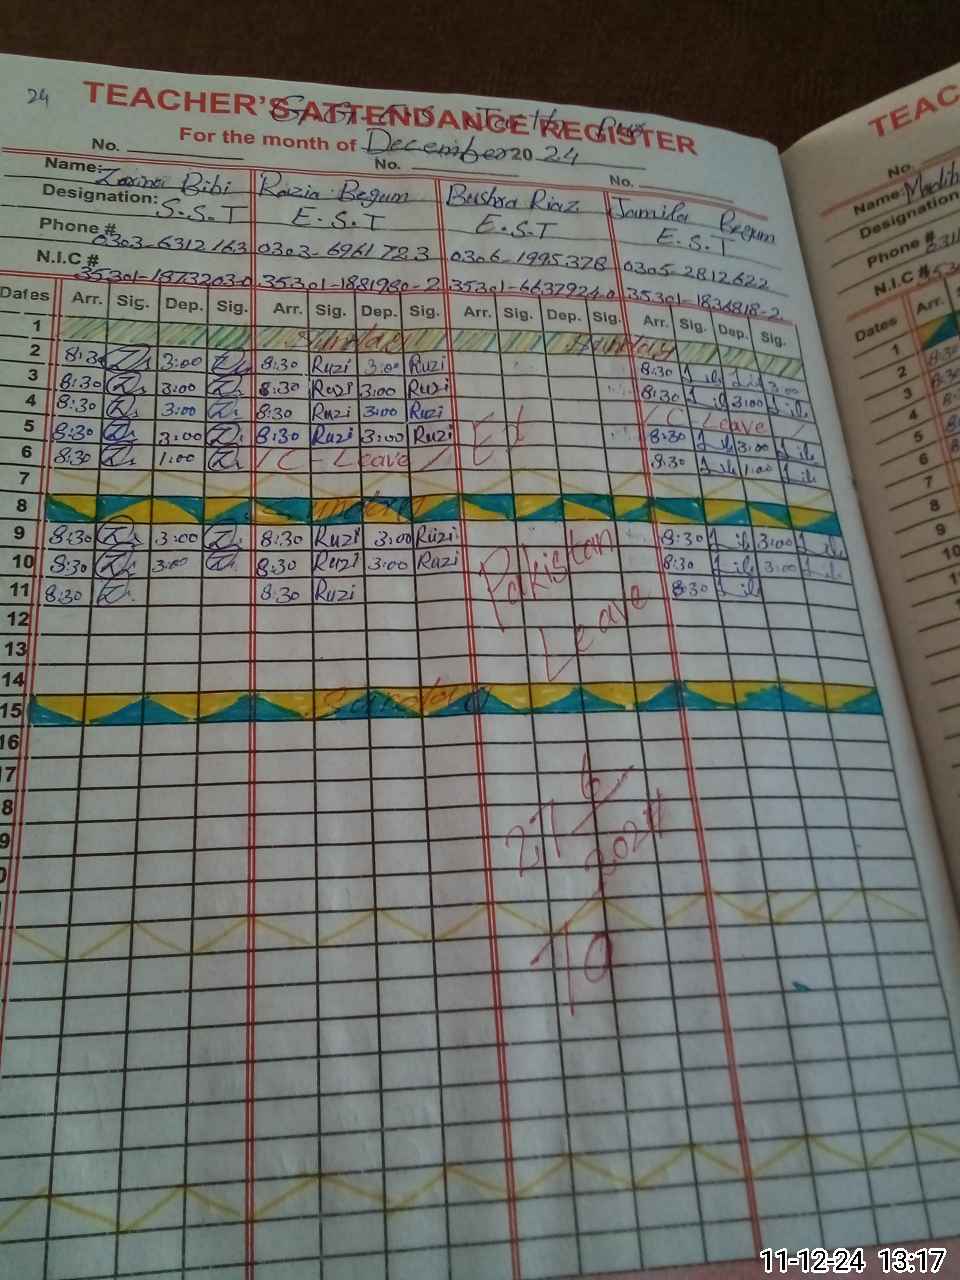 24
TEACHER'S ATTENDANCE REGISTER
For the month of December 2024
No. No. No.
Name: Zarina Bibi Razia Begum Bushra Riaz Jamila Begum
Designation: S.S.T E.S.T E.S.T E.S.T
Phone # 0303-6312163 0303-6961723 0306-1995378 0305-2812622
N.I.C # 35301-1873203-0 35301-1881980-2 35301-6637924-0 35301-1834818-2
Dates Arr. Sig. Dep. Sig. Arr. Sig. Dep. Sig. Arr. Sig. Dep. Sig. Arr. Sig. Dep. Sig.
1 Sunday Sunday
2 8:30 3:00 8:30 Ruzi 3:00 Ruzi 8:30 3:00
3 8:30 3:00 8:30 Ruzi 3:00 Ruzi 8:30 3:00
4 8:30 3:00 8:30 Ruzi 3:00 Ruzi C Leave
5 8:30 3:00 8:30 Ruzi 3:00 Ruzi 8:30 3:00
6 8:30 1:00 C - Leave Ex 8:30 1:00
7
8 Sunday
9 8:30 3:00 8:30 Ruzi 3:00 Ruzi 8:30 3:00
10 8:30 3:00 8:30 Ruzi 3:00 Ruzi Pakistan 8:30 3:00
11 8:30 8:30 Ruzi 8:30
12 Leave
13
14
15 Sunday
16
17
18
19
2024
To
TEAC
No.
Name:
Designation
Phone #
N.I.C #
Dates Arr.
1
2
3
4
5
6
7
8
9
10
11-12-24 13:17